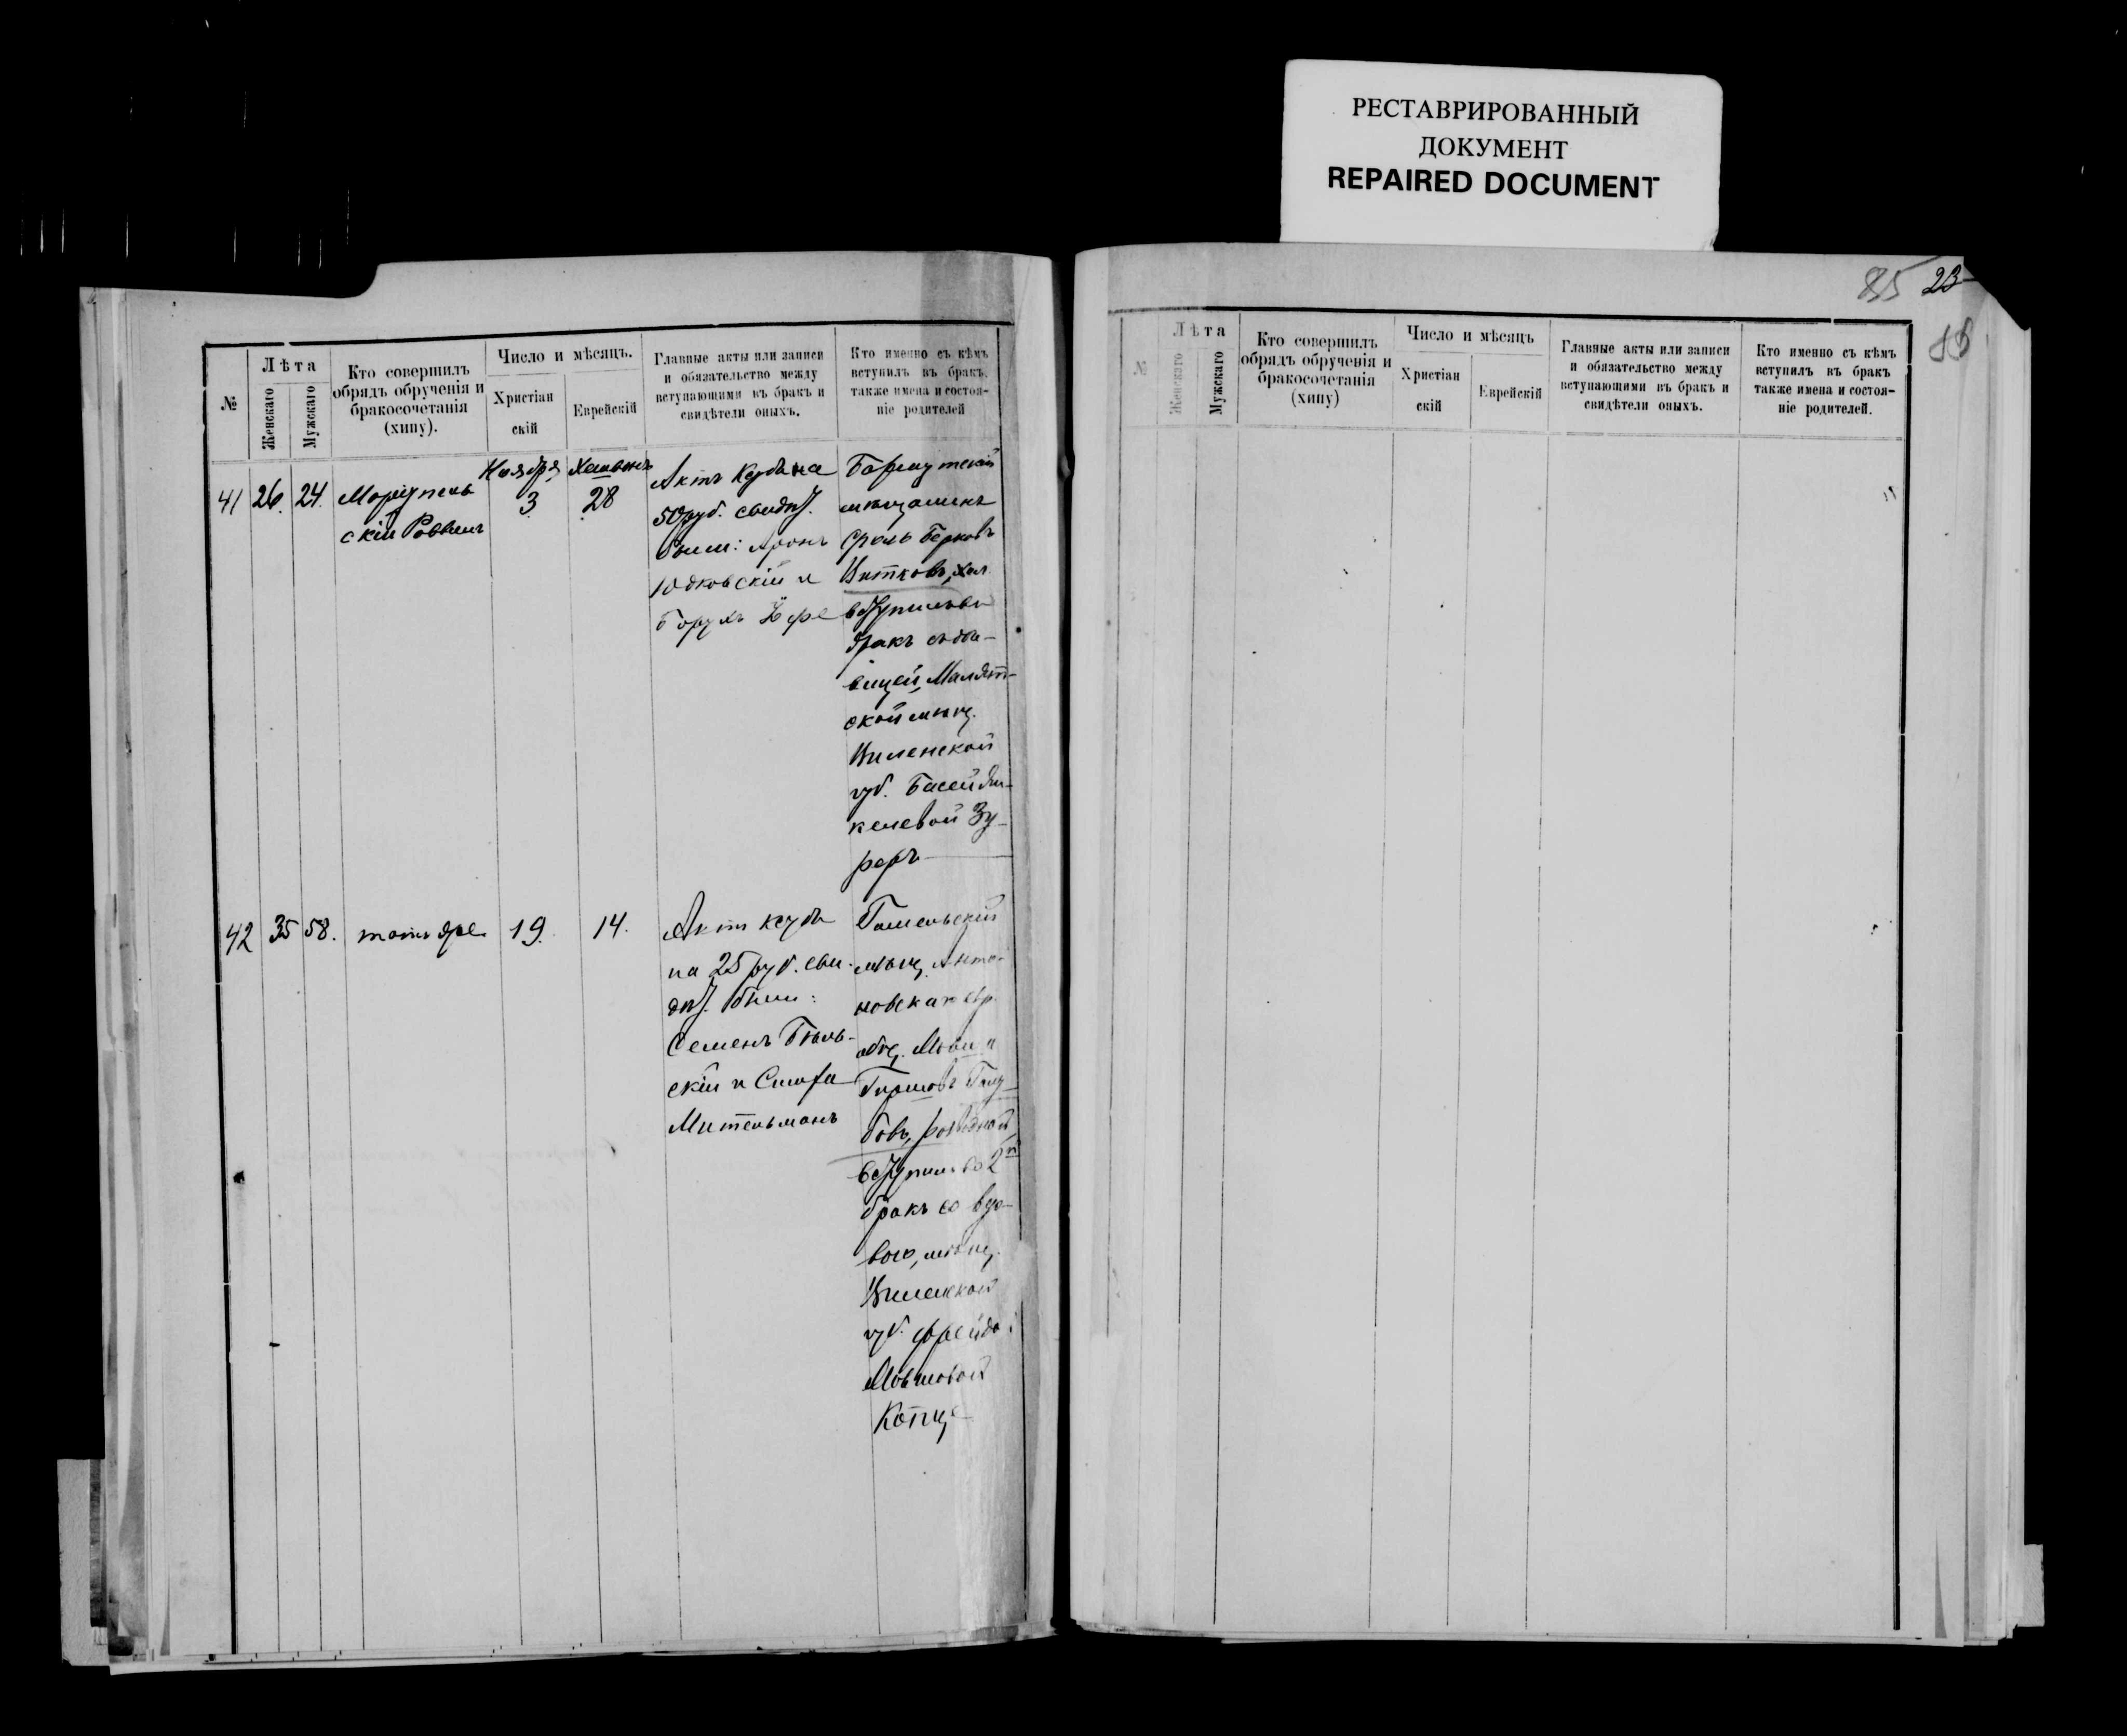 РЕСТАВРИРОВАННЫЙ
ДОКУМЕНТ
REPAIRED DOCUMENT
85 23
№
Лѣта
Женскаго
Мужскаго
Кто совершилъ
обрядъ обрученія и
бракосочетанія
(хипу).
Число и мѣсяцъ.
Христіан
скій
Еврейскій
Главные акты или записи
и обязательство между
вступающими въ бракъ и
свидѣтели оныхъ.
Кто именно съ кѣмъ
вступилъ въ бракъ,
также имена и состоя-
ніе родителей
41
26.
24.
Маріупель
скій Раввинъ
Ноября
3
28
Актъ Ксуба на
50 руб. свидѣт.
были: Аронъ
Юдковскій и
Борухъ
мѣщанинъ
Сроль Берковъ
Витковъ, хол.
вступилъ въ
бракъ съ дѣ-
вицей,
ской мѣщ.
Виленской
губ. Басей
келевой Зу-
реръ
42
35
58.
тотъ же
19.
14.
Актъ ксуба
на 25 руб. сви-
дѣт. были:
Семенъ Бѣль-
скій и
Мительманъ
Гомельскій
мѣщ. Анто-
новскаго евр.
общ. Мовша
Гиршовъ Голу-
бовъ, разводной,
вступилъ во 2й
бракъ со вдо-
вою, мѣщ.
Виленской
губ. Фрейдой
Мовшовой
Копщ
№
Лѣта
Женскаго
Мужскаго
Кто совершилъ
обрядъ обрученія и
бракосочетанія
(хипу)
Число и мѣсяцъ
Христіан
скій
Еврейскій
Главные акты или записи
и обязательство между
вступающими въ бракъ и
свидѣтели оныхъ.
Кто именно съ кѣмъ
вступилъ въ бракъ
также имена и состоя-
ніе родителей.